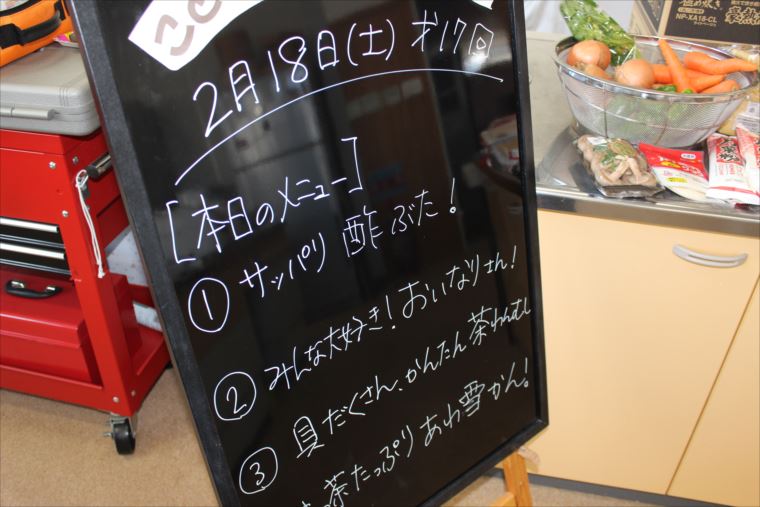 2月18日(土) 才17回
[本日のメニュー]
① サッパリ 酢ぶた!
② みんな大好き!おいなりさん!
③ 具だくさん、かんたん 茶わんむし
茶たっぷり あわ雪かん!
NP-XA18-CL